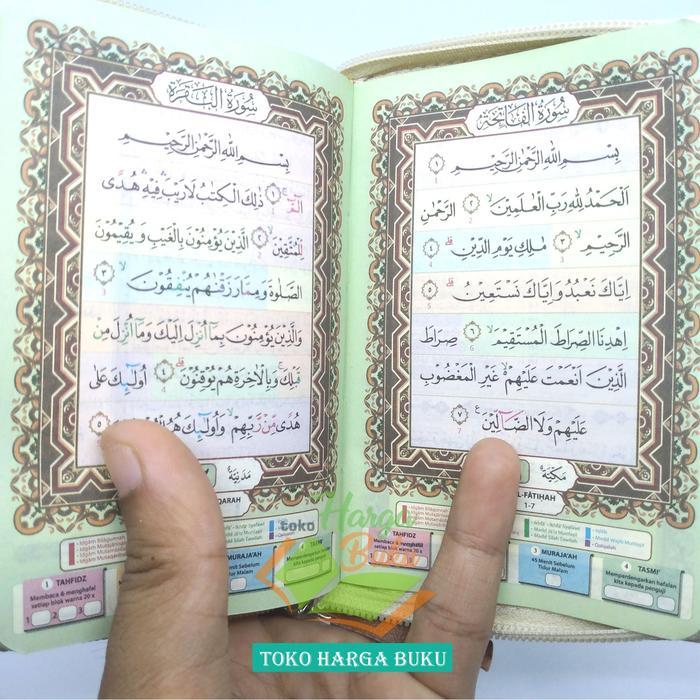 سُوْرَةُ الْفَاتِحَةِ
بِسْمِ اللّٰهِ الرَّحْمٰنِ الرَّحِيْمِ ١
اَلْحَمْدُ لِلّٰهِ رَبِّ الْعٰلَمِيْنَۙ ٢ الرَّحْمٰنِ
الرَّحِيْمِۙ ٣ مٰلِكِ يَوْمِ الدِّيْنِۗ ٤
اِيَّاكَ نَعْبُدُ وَاِيَّاكَ نَسْتَعِيْنُۗ ٥
اِهْدِنَا الصِّرَاطَ الْمُسْتَقِيْمَۙ ٦ صِرَاطَ
الَّذِيْنَ اَنْعَمْتَ عَلَيْهِمْ ەۙ غَيْرِ الْمَغْضُوْبِ
عَلَيْهِمْ وَلَا الضَّاۤلِّيْنَ ٧
مَكِّيَّة
L-FĀTIḤAH
1-7
سُوْرَةُ الْبَقَرَةِ
بِسْمِ اللّٰهِ الرَّحْمٰنِ الرَّحِيْمِ
الۤمّۤۚ ١ ذٰلِكَ الْكِتٰبُ لَا رَيْبَۛ فِيْهِۛ هُدًى
لِّلْمُتَّقِيْنَۙ ٢ الَّذِيْنَ يُؤْمِنُوْنَ بِالْغَيْبِ وَيُقِيْمُوْنَ
الصَّلٰوةَ وَمِمَّا رَزَقْنٰهُمْ يُنْفِقُوْنَۙ ٣
وَالَّذِيْنَ يُؤْمِنُوْنَ بِمَآ اُنْزِلَ اِلَيْكَ وَمَآ اُنْزِلَ مِنْ
قَبْلِكَۚ وَبِالْاٰخِرَةِ هُمْ يُوْقِنُوْنَۗ ٤ اُولٰۤىِٕكَ عَلٰى
هُدًى مِّنْ رَّبِّهِمْۙ وَاُولٰۤىِٕكَ هُمُ ٥
مَدَنِيَّة
QARAH
1 TAHFIDZ
Membaca & menghafal
setiap blok warna 20 x
1 2 3
MURAJA'AH
Menit Sebelum
Tidur Malam
4
Memperdengarkan
kita kepada
Membaca & menghafal
setiap blok warna 20 x
3 MURAJA'AH
45 Menit Sebelum
Tidur Malam
4 TASMI'
Memperdengarkan hafalan
kita kepada penguji
toko Harga Buku
TOKO HARGA BUKU